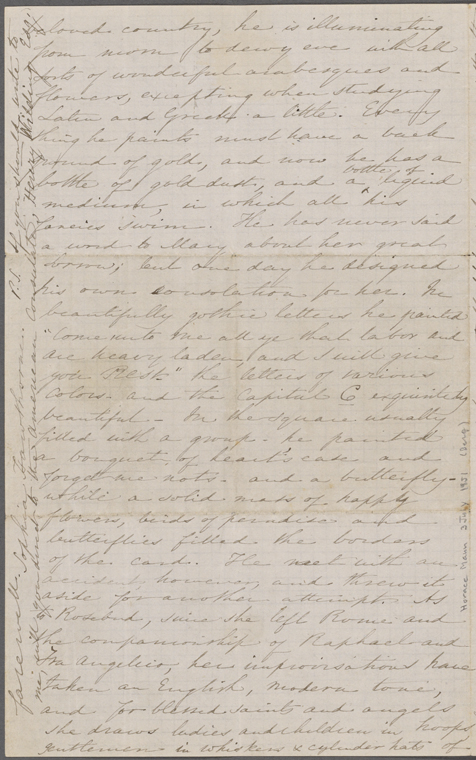 beloved country, he is illuminating
from morn to dewy eve with all
sorts of wonderful arabesques and
flowers, excepting when studying
Latin and Greek a little. Every
thing he paints must have a back
ground of gold, and now he has a
bottle of gold dust, and a bottle of liquid
medium, in which all his
fancies swim. He has never said
a word to Mary about her great
sorrow; but one day he designed
his own consolation for her. In
beautifully gothic letters he painted
"Come unto me all ye that labor and
are heavy laden, and I will give
you Rest." the letters of various
colors and the Capital C exquisitely
beautiful - In the square usually
filled with a group - he painted
a bouquet of heart's ease and
forget me nots - and a butterfly -
while a solid mass of happy
flowers, birds of paradise and
butterflies filled the borders
of the card. He met with an
accident however, and threw it
aside for another attempt. As
to Rosebud, since she left Rome and
the companionship of Raphael and
Fra Angelico, her improvisations have
taken an English, modern tone,
and for blessed saints and angels
she draws ladies and children in hoops
gentlemen in whiskers & cylinder hats of
farewell. Sophia Hawthorne.
P.S. If you should write to
me, will you direct to the American Consulate, Henry Wilding Esq.
Horace Mann 3 July 1931 (Berg)